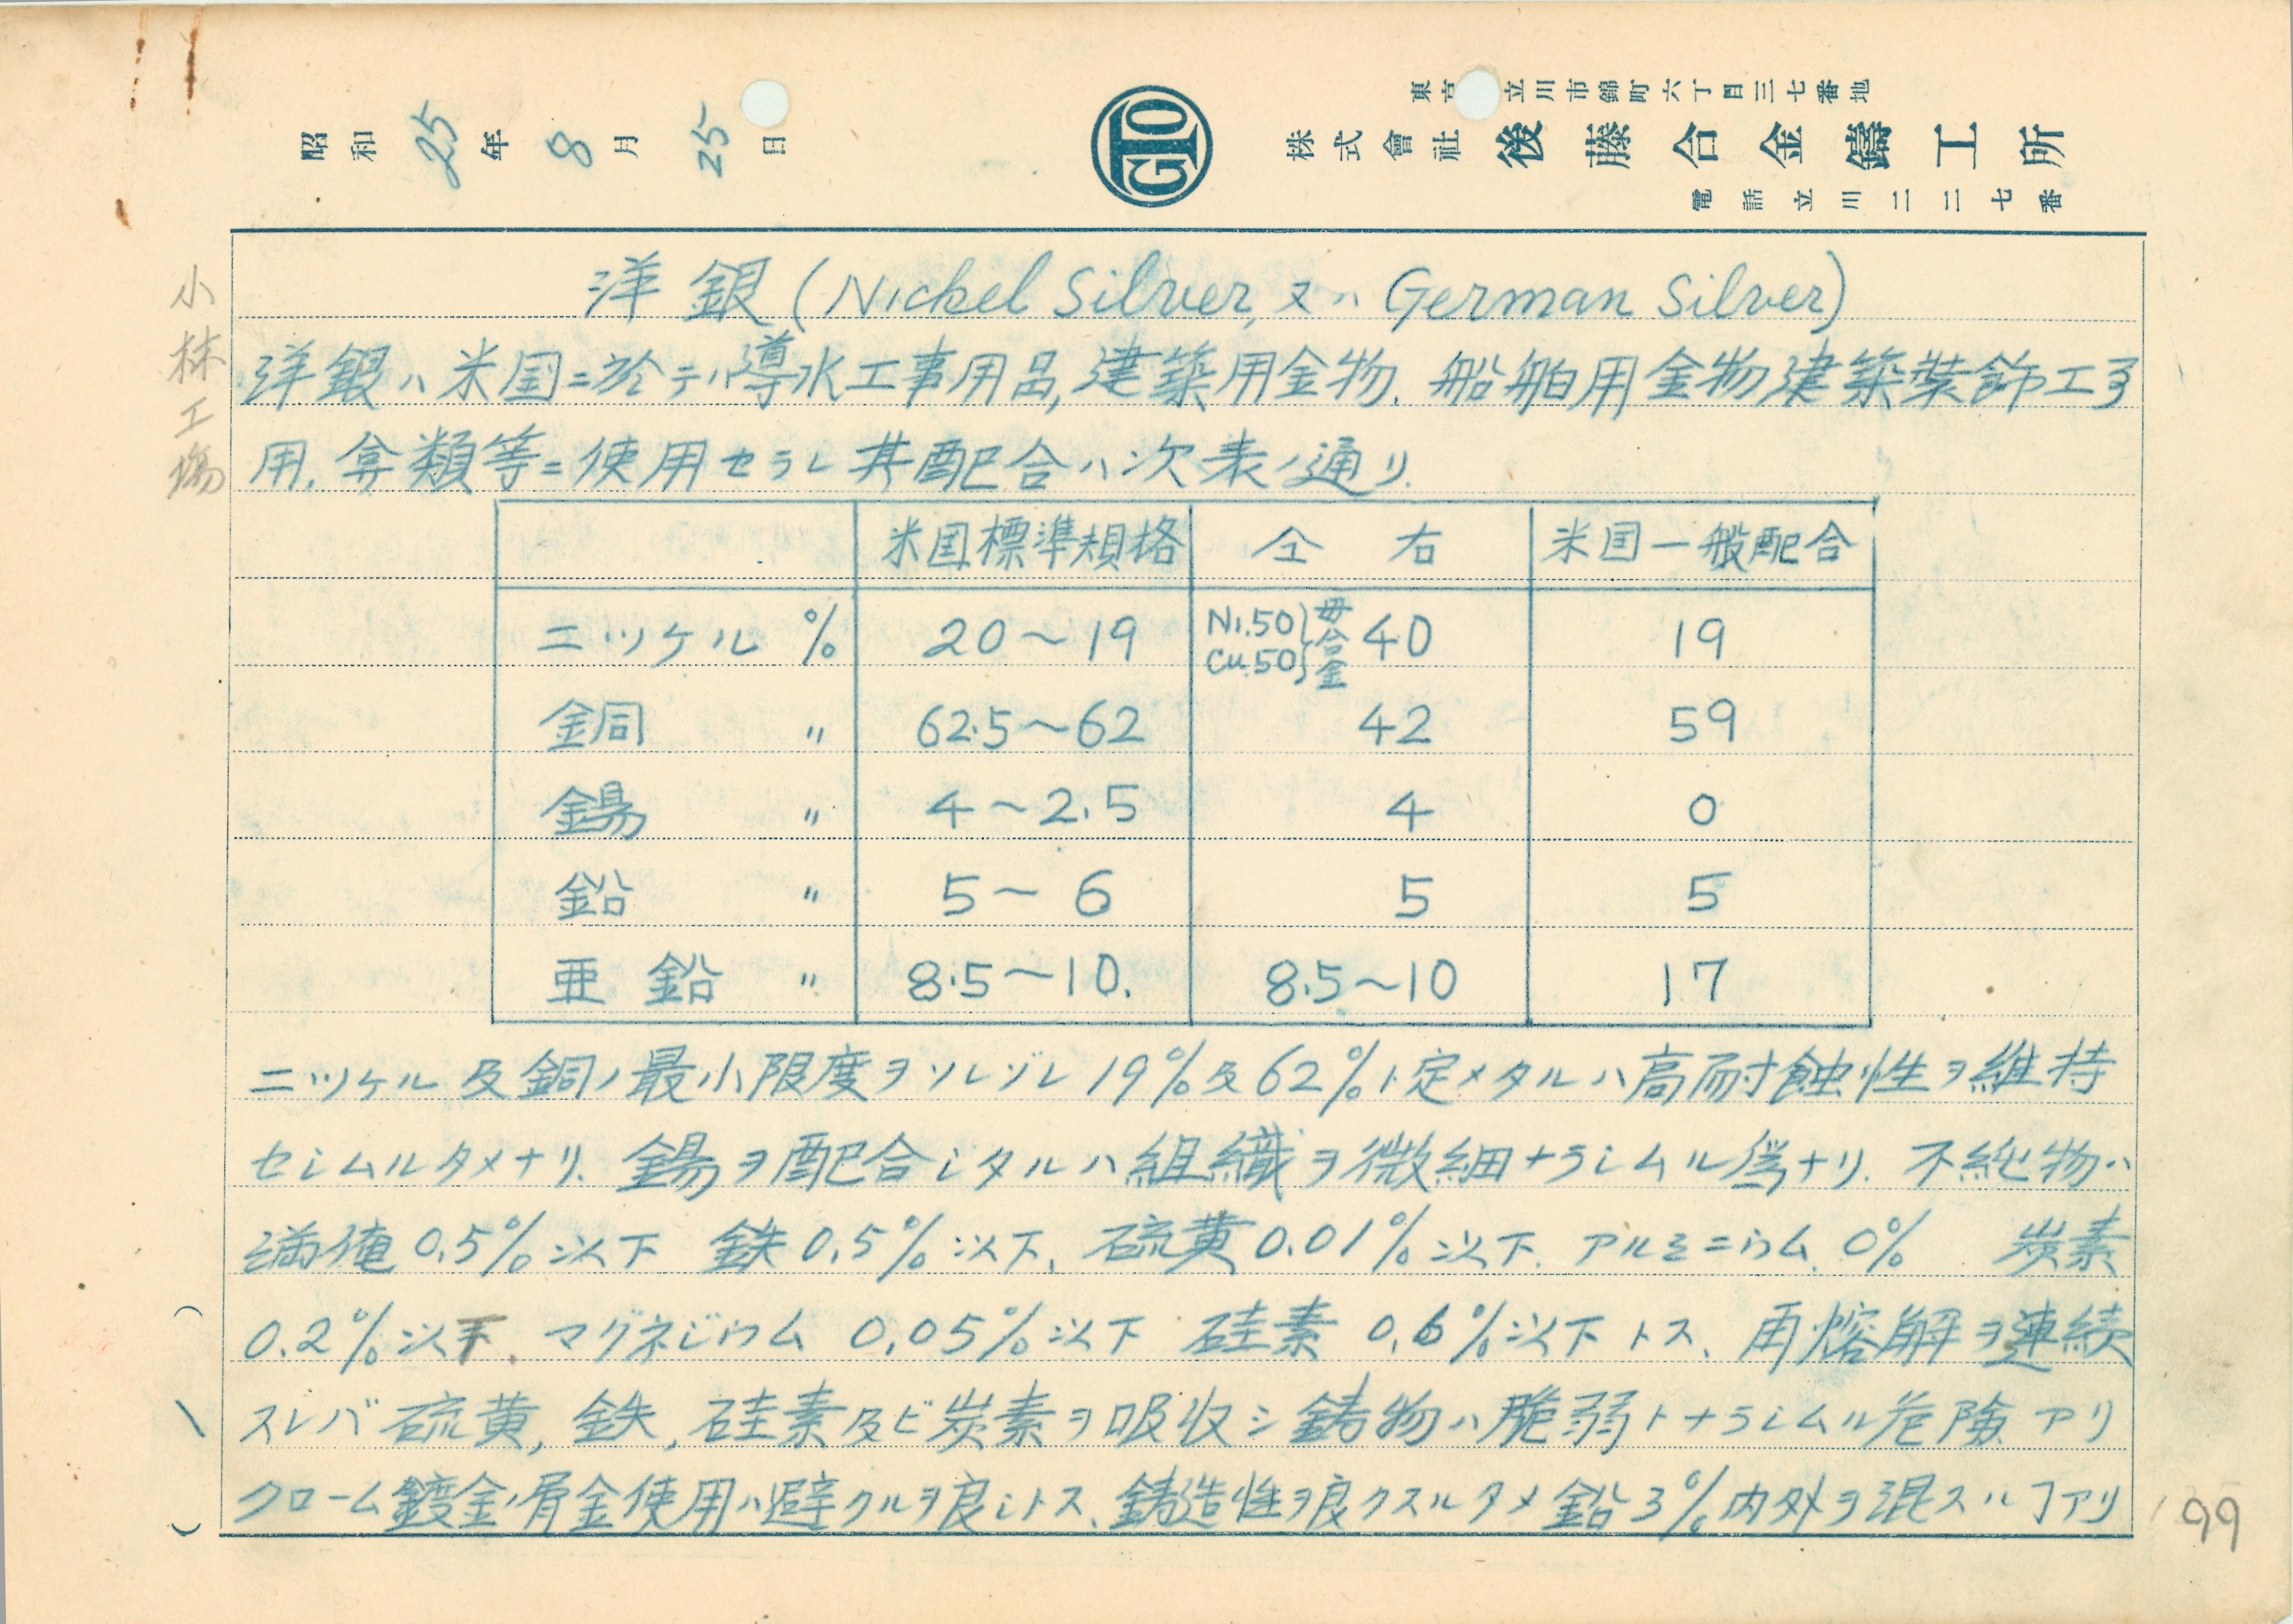 東京 立川市錦町六丁目三七番地
株式會社 後藤合金鑄工所
電話立川二二七番
GTO
昭和25年8月25日
小林工場
洋銀(Nickel Silver, 又ハ German Silver)
洋銀ハ米国ニ於テハ導水工事用品,建築用金物.船舶用金物建築装飾工事
用.弁類等ニ使用セラレ其配合ハ次表ノ通リ.
米国標準規格 仝右 米国一般配合
ニツケル % 20~19 Ni.50 Cu.50 母合金 40 19
銅 〃 62.5~62 42 59
錫 〃 4~2.5 4 0
鉛 〃 5~6 5 5
亜鉛 〃 8.5~10. 8.5~10 17
ニツケル及銅ノ最小限度ヲソレゾレ19%及62%ト定メタルハ高耐蝕性ヲ維持
セシムルタメナリ.錫ヲ配合シタルハ組織ヲ微細ナラシムル為ナリ.不純物ハ
満俺0.5%以下 鉄0.5%以下.硫黄0.01%以下.アルミニウム.0% 炭素
0.2%以下.マグネシウム 0.05%以下 硅素 0.6%以下トス、再熔解ヲ連続
スレバ硫黄,鉄,硅素及ビ炭素ヲ吸収シ鋳物ハ脆弱トナラシムル危険アリ
クローム鍍金ノ屑金使用ハ避クルヲ良シトス、鋳造性ヲ良クスルタメ鉛3%内外ヲ混スルヿアリ
99